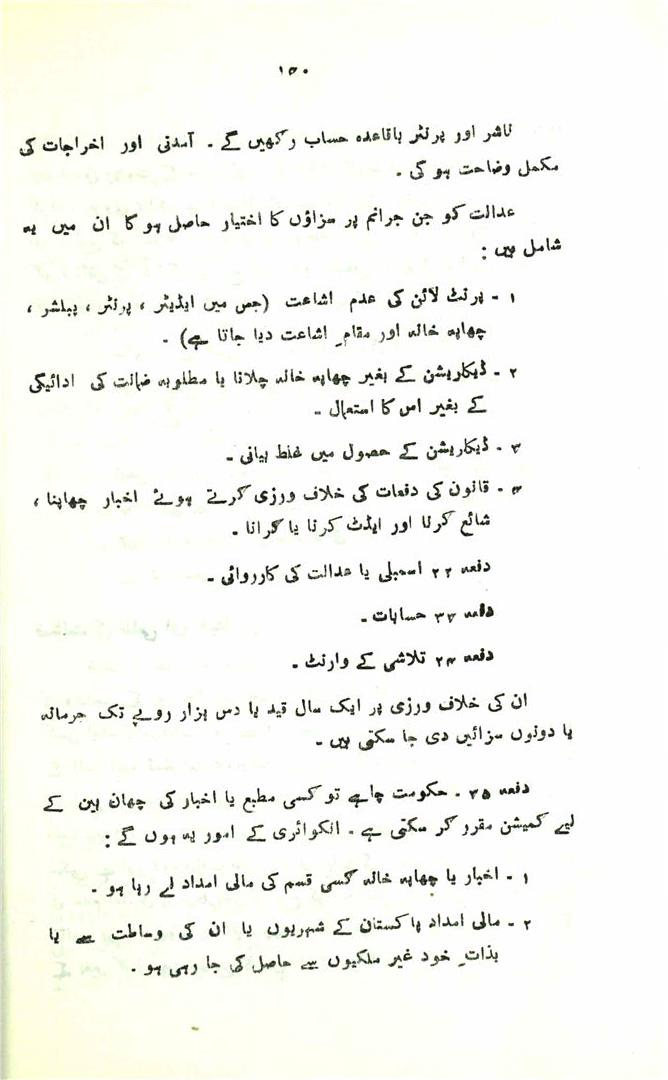 ۱۵۰
ناشر اور پرنٹر باقاعدہ حساب رکھیں گے ۔ آمدنی اور اخراجات کی
مکمل وضاحت ہو گی ۔
عدالت کو جن جرائم پر سزاؤں کا اختیار حاصل ہو گا ان میں یہ
شامل ہیں :
۱ ۔ پرنٹ لائن کی عدم اشاعت (جس میں ایڈیٹر ، پرنٹر ، پبلشر ،
چھاپہ خانہ اور مقامِ اشاعت دیا جاتا ہے) ۔
۲ ۔ ڈیکلریشن کے بغیر چھاپہ خانہ چلانا یا مطلوبہ ضمانت کی ادائیگی
کے بغیر اس کا استعمال ۔
۳ ۔ ڈیکلریشن کے حصول میں غلط بیانی ۔
۴ ۔ قانون کی دفعات کی خلاف ورزی کرتے ہوئے اخبار چھاپنا ،
شائع کرنا اور ایڈٹ کرنا یا کرانا ۔
دفعہ ۲۲ اسمبلی یا عدالت کی کارروائی ۔
دفعہ ۳۳ حسابات ۔
دفعہ ۲۴ تلاشی کے وارنٹ ۔
ان کی خلاف ورزی پر ایک سال قید یا دس ہزار روپے تک جرمانہ
یا دونوں سزائیں دی جا سکتی ہیں ۔
دفعہ ۳۵ ۔ حکومت چاہے تو کسی مطبع یا اخبار کی چھان بین کے
لیے کمیشن مقرر کر سکتی ہے ۔ انکوائری کے امور یہ ہوں گے :
۱ ۔ اخبار یا چھاپہ خانہ کسی قسم کی مالی امداد لے رہا ہو ۔
۲ ۔ مالی امداد پاکستان کے شہریوں یا ان کی وساطت سے یا
بذاتِ خود غیر ملکیوں سے حاصل کی جا رہی ہو ۔